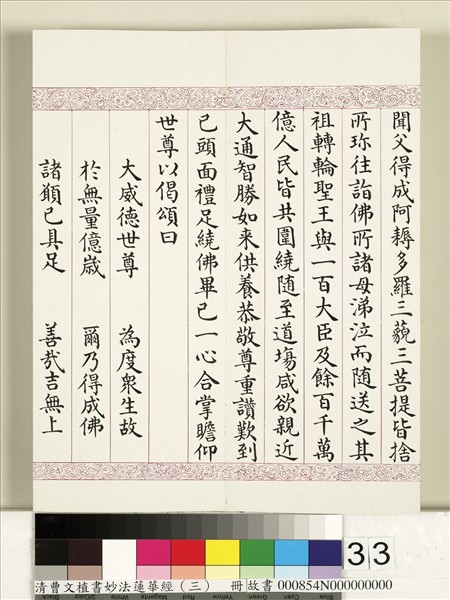 聞父得成阿耨多羅三藐三菩提皆捨
所珎往詣佛所諸母涕泣而隨送之其
祖轉輪聖王與一百大臣及餘百千萬
億人民皆共圍繞隨至道場咸欲親近
大通智勝如来供養恭敬尊重讚歎到
已頭面禮足繞佛畢已一心合掌瞻仰
世尊以偈頌曰
大威德世尊 為度衆生故
於無量億歲 爾乃得成佛
諸願已具足 善哉吉無上
33
清曹文植書妙法蓮華經（三） 冊 故書 000854N000000000
Black 3/Color White Magenta Red Yellow Green Cyan Blue